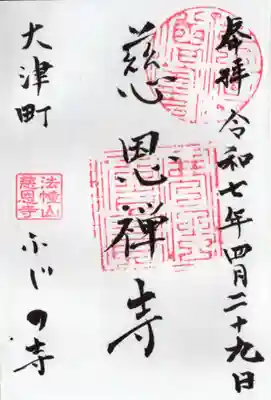 奉拝 令和七年四月二十九日
慈恩禅寺
大津町
ふじの寺
法幢山
慈恩寺